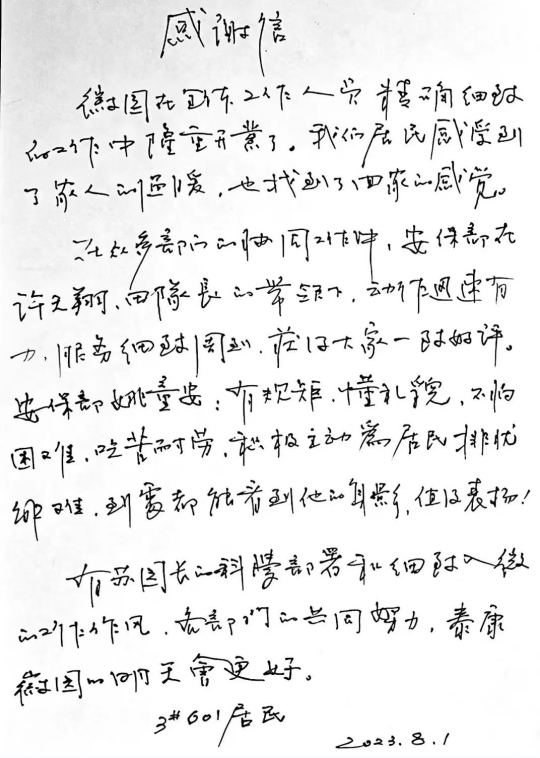 感谢信
徽园在全体工作人员精确细致
的工作中隆重开業了。我们居民感受到
了家人的温暖，也找到了回家的感觉。
在众多部门的协同工作中，安保部在
许天翔、田隊長的带领下，动作迅速有
力，服务细致周到，获得大家一致好评。
安保部姚童安：有规矩，懂礼貌，不怕
困难，吃苦耐劳，积极主动為居民排忧
解难，到處都能看到他的身影，值得表扬！
有苏园长的科學部署和细致入微
的工作作风，各部门的共同努力，泰康
徽园的明天會更好。
3#601居民
2023.8.1